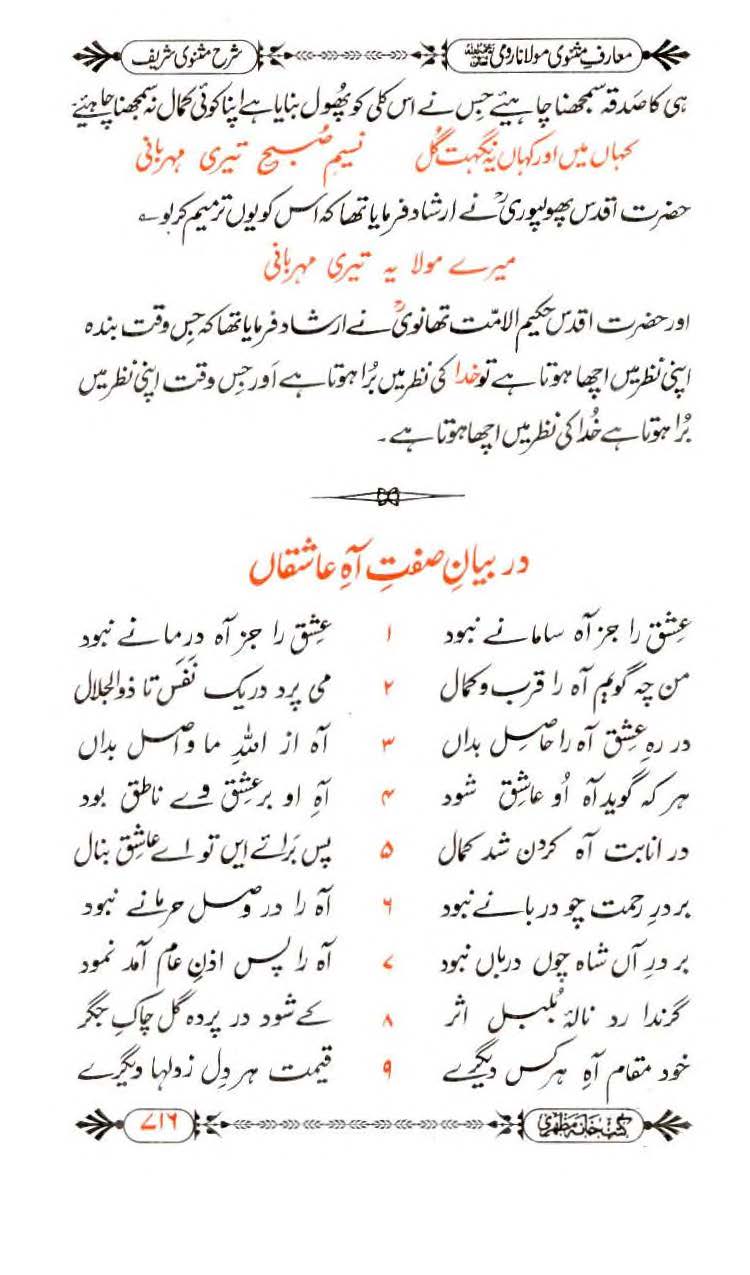 معارفِ مثنوی مولانا رومی رحمۃ اللہ علیہ شرح مثنوی شریف
ہی کا صَدقہ سمجھنا چاہیئے جس نے اس کلی کو پھُول بنایا ہے اپنا کوئی کمال نہ سمجھنا چاہیئے۔
کہاں میں اور کہاں یہ نگہت گُل نسیم صُبح تیری مہربانی
حضرت اقدس پھولپوریؒ نے ارشاد فرمایا تھا کہ اس کو یوں ترمیم کر لو ؎
میرے مولا یہ تیری مہربانی
اور حضرت اقدس حکیم الامّت تھانویؒ نے ارشاد فرمایا تھا کہ جس وقت بندہ
اپنی نظر میں اچھا ہوتا ہے تو خدا کی نظر میں بُرا ہوتا ہے اَور جس وقت اپنی نظر میں
بُرا ہوتا ہے خُدا کی نظر میں اچھا ہوتا ہے۔
در بیانِ صفتِ آہِ عاشقاں
عِشق را جز آہ سامانے نبود ۱ عِشق را جز آہ درمانے نبود
من چہ گویم آہ را قرب و کمال ۲ می پرد در یک نَفَس تا ذوالجلال
در رہِ عِشق آہ را حاصِل بداں ۳ آہ از اللہِ ما واصل بداں
ہر کہ گوید آہ اُو عاشِق شود ۴ آہِ او بر عِشق وے ناطق بود
در انابت آہ کردن شد کمال ۵ پس بَرائے ایں تو اے عاشِق بنال
بر درِ رحمت چو دربانے نبود ۶ آہ را در وصل حرمانے نبود
بر درِ آں شاہ چوں درباں نبود ۷ آہ را پس اذنِ عام آمد نمود
گر ندارد نالۂ بُلبل اثر ۸ کے شود در پردہ گل چاکِ جگر
خود مقام آہِ ہر کس دیگرے ۹ قیمت ہر دِل ز دلہا دیگرے
کتب خانہ مظہری ۷۱۶